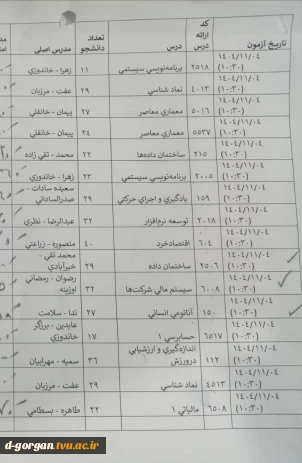 تاریخ آزمون کد ارائه درس درس تعداد دانشجو مدرس اصلی
۱۴۰۴/۱۱/۰۴ (۱۰:۳۰) ۲۵۱۸ برنامه‌نویسی سیستمی ۱۱ زهرا - خاندوزی
۱۴۰۴/۱۱/۰۴ (۱۰:۳۰) ۴۰۱۳ نماد شناسی ۲۹ عفت - مرزبان
۱۴۰۴/۱۱/۰۴ (۱۰:۳۰) ۵۰۱۶ معماری معاصر ۲۷ پیمان - خانقلی
۱۴۰۴/۱۱/۰۴ (۱۰:۳۰) ۵۵۳۷ معماری معاصر ۲۴ پیمان - خانقلی
۱۴۰۴/۱۱/۰۴ (۱۰:۳۰) ۲۱۵ ساختمان داده‌ها ۲۲ محمد - تقی زاده
۱۴۰۴/۱۱/۰۴ (۱۰:۳۰) ۲۰۰۵ برنامه‌نویسی سیستمی ۲۳ زهرا - خاندوزی
۱۴۰۴/۱۱/۰۴ (۱۰:۳۰) ۱۵۹ یادگیری و اجرای حرکتی ۲۹ سعیده سادات - صدرالساداتی
۱۴۰۴/۱۱/۰۴ (۱۰:۳۰) ۲۰۱۸ توسعه نرم‌افزار ۳۲ عبدالرضا - نظری
۱۴۰۴/۱۱/۰۴ (۱۰:۳۰) ۶۰۴ اقتصادخرد ۴۰ منصوره - زراعتی
۱۴۰۴/۱۱/۰۴ (۱۰:۳۰) ۲۵۰۶ ساختمان داده ۲۹ محمد تقی - خیرآبادی
۱۴۰۴/۱۱/۰۴ (۱۰:۳۰) ۶۰۰۸ سیستم مالی شرکت‌ها ۳۲ رضوان - رمضانی اوزینه
۱۴۰۴/۱۱/۰۴ (۱۰:۳۰) ۱۵۰ آناتومی انسانی ۲۷ ندا - سلامت
۱۴۰۴/۱۱/۰۴ (۱۰:۳۰) ۶۵۱۷ حسابرسی ۱ ۱۷ عابدین - برزگر خاندوزی
۱۴۰۴/۱۱/۰۴ (۱۰:۳۰) ۱۱۲ اندازه‌گیری و ارزشیابی درورزش ۳۶ سمیه - مهرابیان
۱۴۰۴/۱۱/۰۴ (۱۰:۳۰) ۴۵۱۳ نماد شناسی ۲۹ عفت - مرزبان
۱۴۰۴/۱۱/۰۴ (۱۰:۳۰) ۶۵۰۸ مالیاتی ۱ ۲۲ طاهره - بسطامی
d-gorgan.tvu.ac.ir